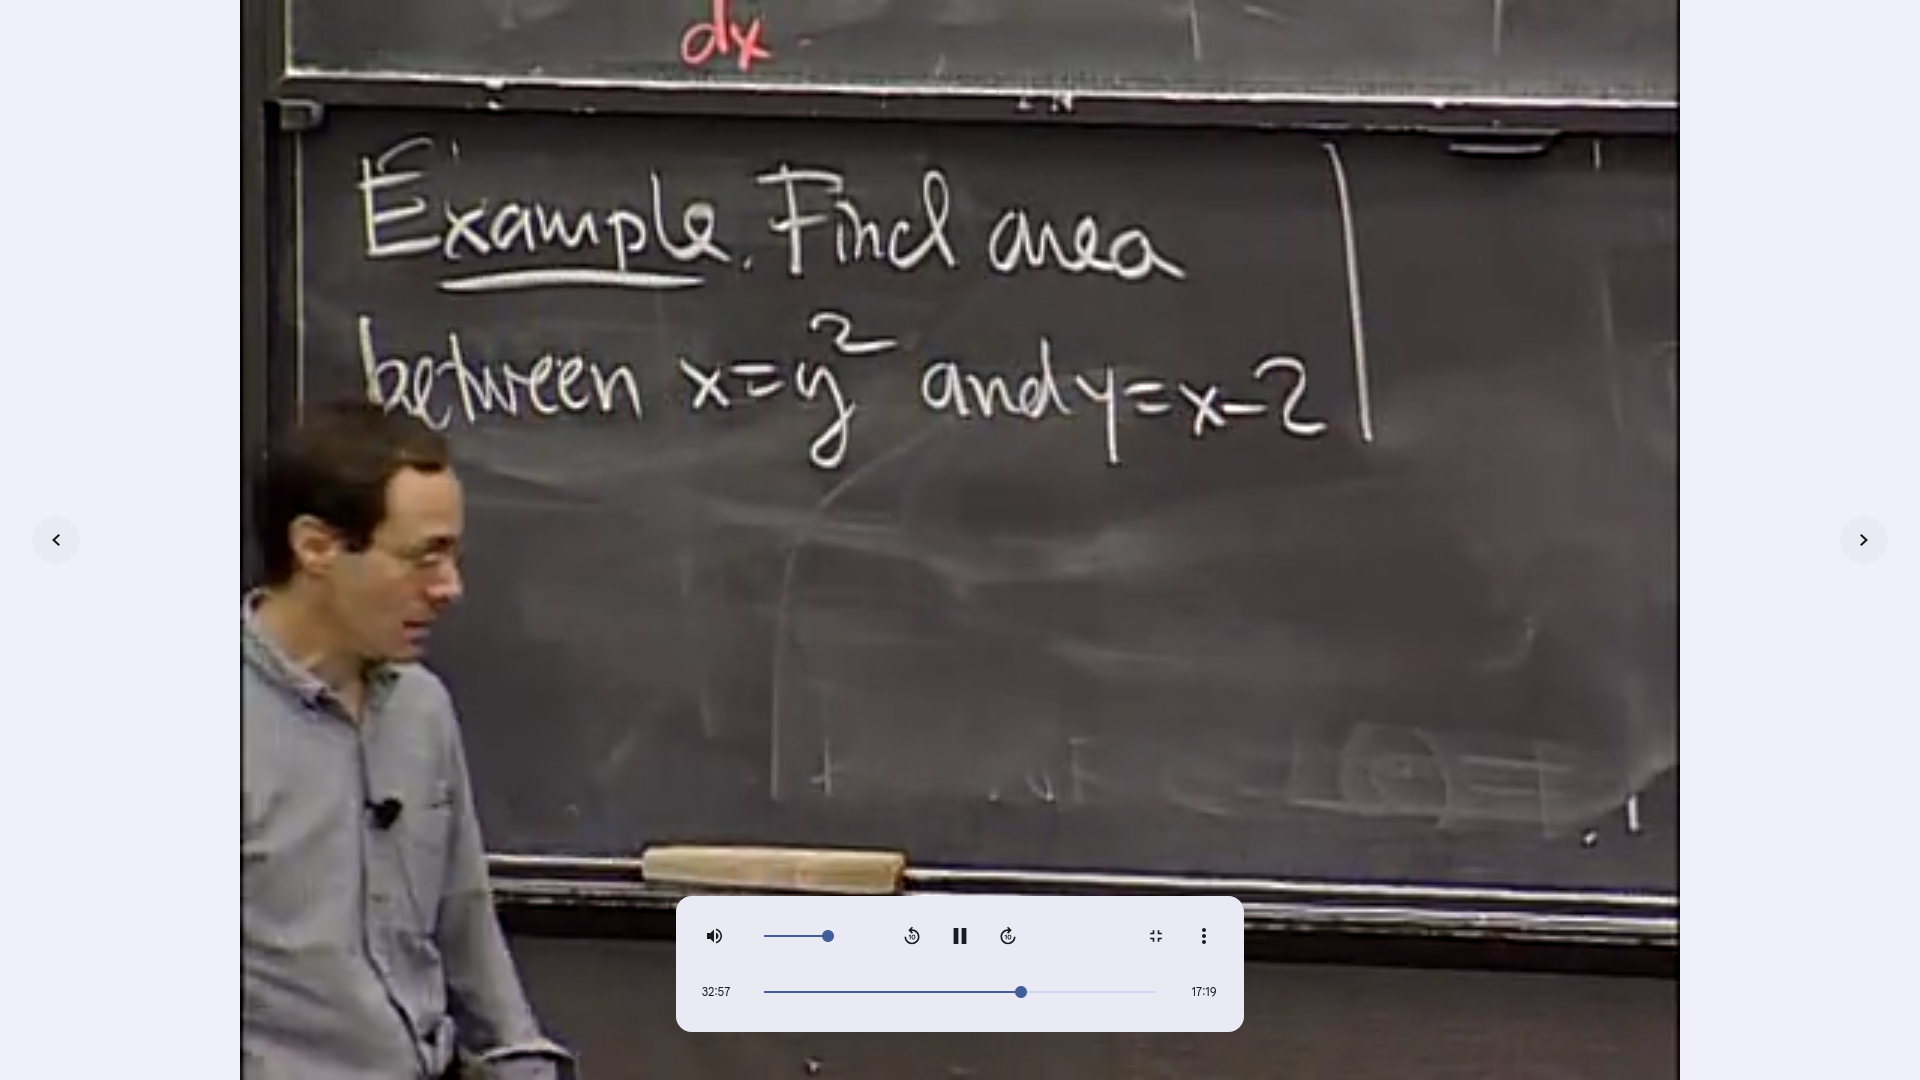 dx
Example. Find area
between x=y² and y=x-2
32:57
17:19